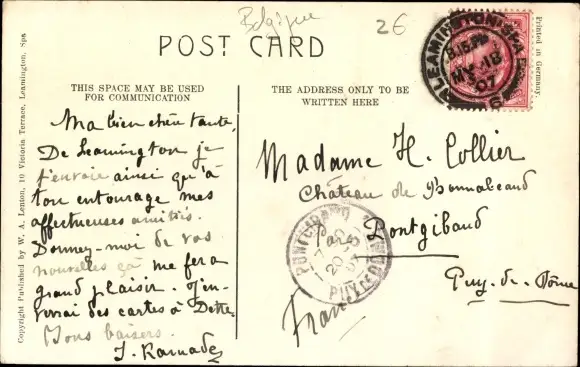 Belgique
26
POST CARD
THIS SPACE MAY BE USED
FOR COMMUNICATION
THE ADDRESS ONLY TO BE
WRITTEN HERE
Copyright Published by W. A. Lenton, 10 Victoria Terrace, Leamington, Spa
Printed in Germany.
LEAMINGTON SPA
8.15 PM
MY 18
07
Ma bien chère tante,
De Leamington je
t'envoie ainsi qu'à
ton entourage mes
affectueuses amitiés.
Donnez-moi de vos
nouvelles ça me fera
grand plaisir. J'en-
verrai des cartes à Dette.
Bons baisers.
J. Ramade
Madame H. Collier
Château de Bonnabaud
Par Pontgibaud
Puy-de-Dôme
France
PONTGIBAUD
20
07
PUY DE DOME